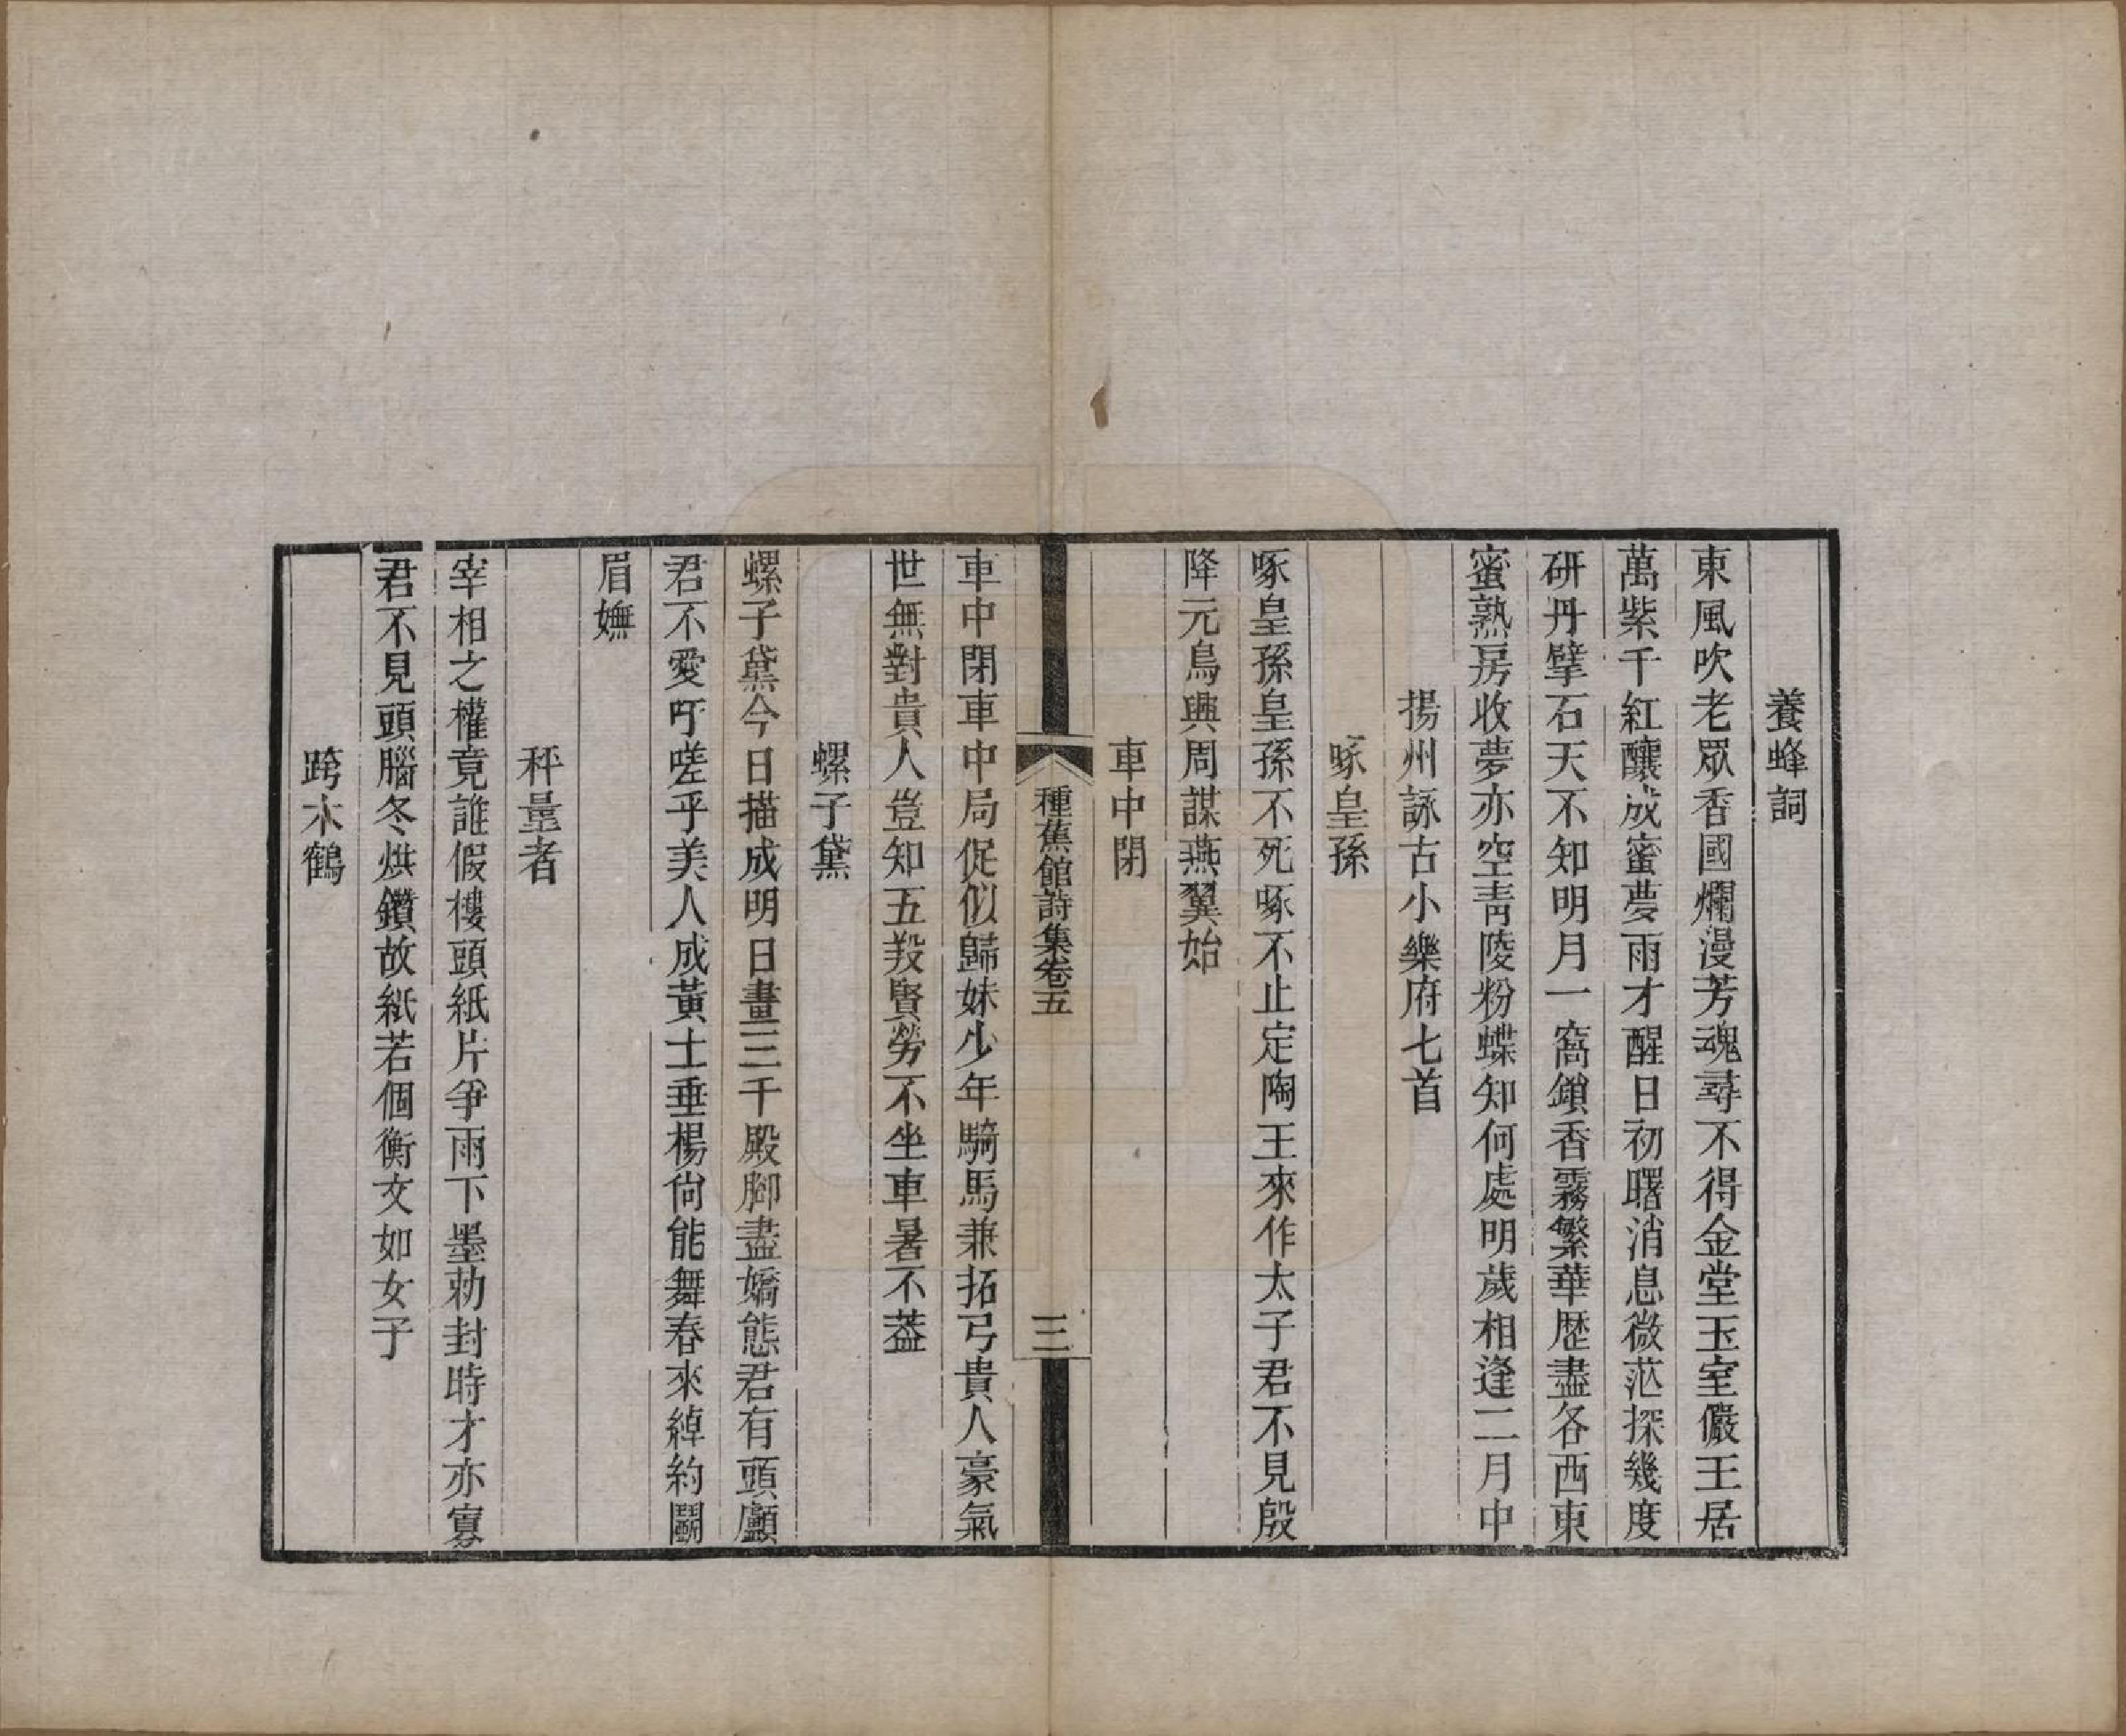 養蜂詞
東風吹老眾香國爛漫芳魂尋不得金堂玉室儼王居
萬紫千紅釀成蜜夢雨才醒日初曙消息微茫探幾度
研丹擘石天不知明月一窩鎖香霧繁華歷盡各西東
蜜熟房收夢亦空青陵粉蝶知何處明歲相逢二月中
揚州詠古小樂府七首
啄皇孫
啄皇孫皇孫不死啄不止定陶王來作太子君不見殷
降元鳥興周謀燕翼始
車中閉
種蕉館詩集卷五
三
車中閉車中局促似歸妹少年騎馬兼拓弓貴人豪氣
世無對貴人豈知五羖賢勞不坐車暑不葢
螺子黛
螺子黛今日描成明日畫三千殿腳盡嬌態君有頭顱
君不愛吁嗟乎美人成黃土垂楊尙能舞春來綽約鬭
眉嫵
秤量者
宰相之權竟誰假樓頭紙片爭雨下墨勅封時才亦寡
君不見頭腦冬烘鑽故紙若個衡文如女子
跨木鶴